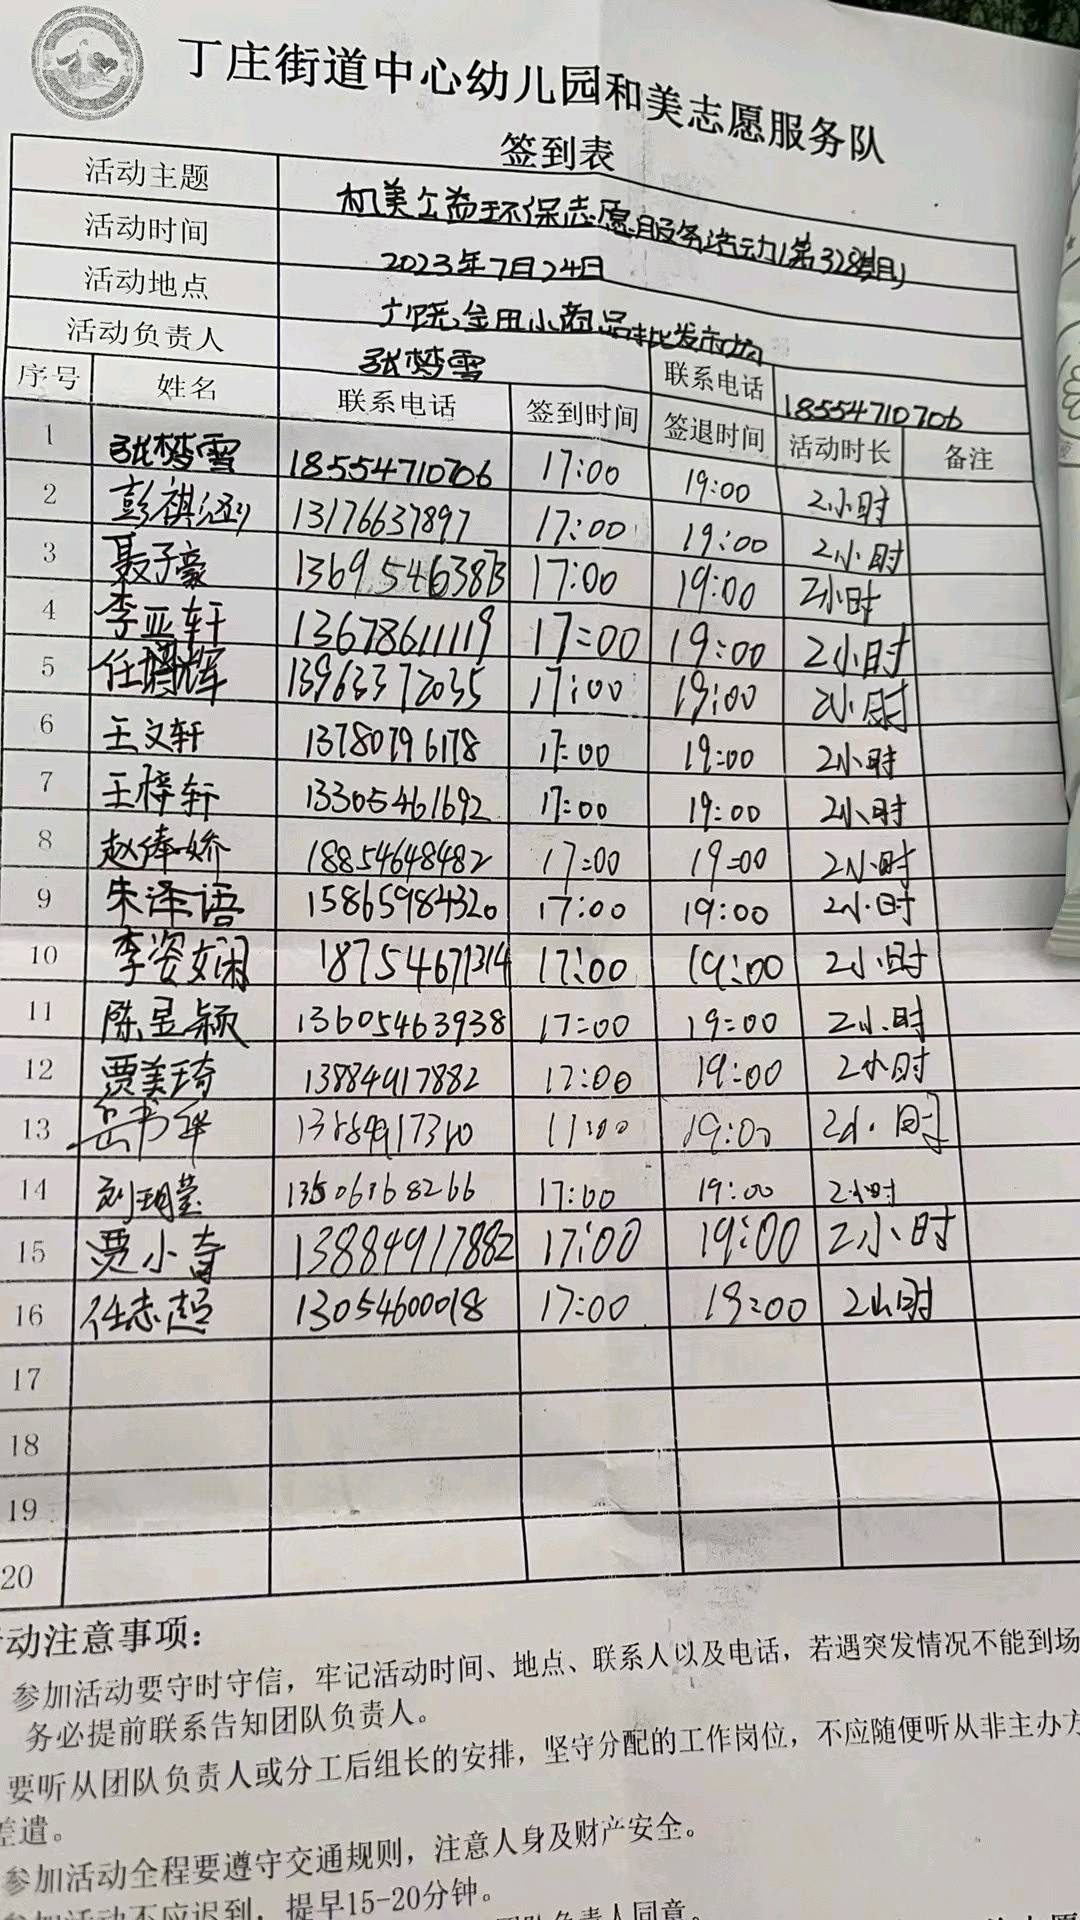 丁庄街道中心幼儿园和美志愿服务队
签到表
活动主题 和美公益环保志愿服务活动(第328期)
活动时间 2023年7月24日
活动地点 广饶金田小商品批发市场
活动负责人 张梦雪 联系电话 18554710706
序号 姓名 联系电话 签到时间 签退时间 活动时长 备注
1 张梦雪 18554710706 17:00 19:00 2小时
2 彭祺涵 13176637897 17:00 19:00 2小时
3 聂子豪 17:00 19:00 2小时
4 李亚轩 13678611119 17:00 19:00 2小时
5 任 辉 13963372035 17:00 19:00 2小时
6 王文轩 13780796178 17:00 19:00 2小时
7 王梓轩 13305461692 17:00 19:00 2小时
8 赵俸娇 18854648482 17:00 19:00 2小时
9 朱泽语 15865984320 17:00 19:00 2小时
10 李姿娴 18754671314 17:00 19:00 2小时
11 陈昱颖 13605463938 17:00 19:00 2小时
12 贾美琦 13884917882 17:00 19:00 2小时
13 岳书华 19:00 2小时
14 刘玥莹 17:00 19:00 2小时
15 贾小奇 13884917882 17:00 19:00 2小时
16 任志超 13054600018 17:00 19:00 2小时
17
18
19
20
动注意事项：
参加活动要守时守信，牢记活动时间、地点、联系人以及电话，若遇突发情况不能到场
务必提前联系告知团队负责人。
要听从团队负责人或分工后组长的安排，坚守分配的工作岗位，不应随便听从非主办方
差遣。
参加活动全程要遵守交通规则，注意人身及财产安全。
参加活动不应迟到，提早15-20分钟。
团队负责人同意。